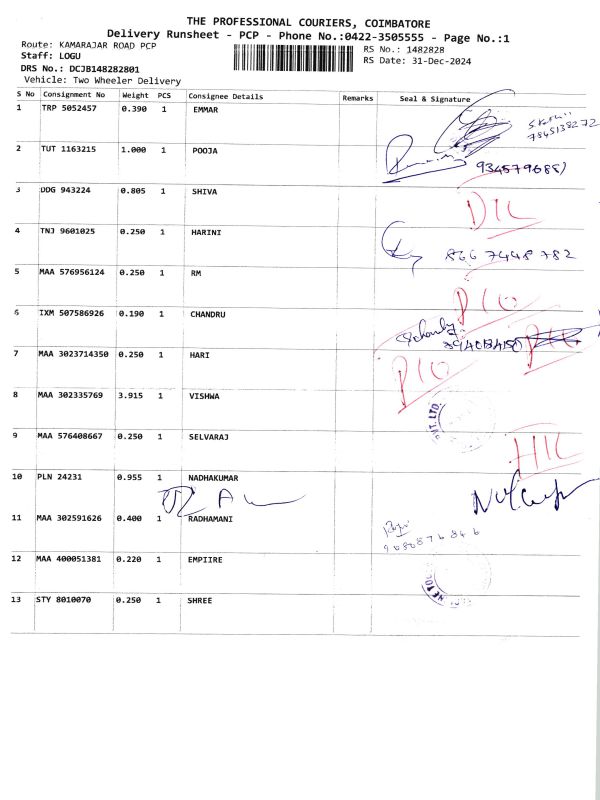 THE PROFESSIONAL COURIERS, COIMBATORE
Delivery Runsheet - PCP - Phone No.:0422-3505555 - Page No.:1
Route: KAMARAJAR ROAD PCP
RS No.: 1482828
Staff: LOGU
RS Date: 31-Dec-2024
DRS No.: DCJB148282801
Vehicle: Two Wheeler Delivery
S No Consignment No Weight PCS Consignee Details Remarks Seal & Signature
1 TRP 5052457 0.390 1 EMMAR
7845138272
2 TUT 1163215 1.000 1 POOJA
3 DDG 943224 0.805 1 SHIVA
4 TNJ 9601025 0.250 1 HARINI
866 7448 782
5 MAA 576956124 0.250 1 RM
6 IXM 507586926 0.190 1 CHANDRU
7 MAA 3023714350 0.250 1 HARI
8 MAA 302335769 3.915 1 VISHWA
PVT. LTD.
9 MAA 576408667 0.250 1 SELVARAJ
10 PLN 24231 0.955 1 NADHAKUMAR
11 MAA 302591626 0.400 1 RADHAMANI
12 MAA 400051381 0.220 1 EMPIIRE
13 STY 8010070 0.250 1 SHREE